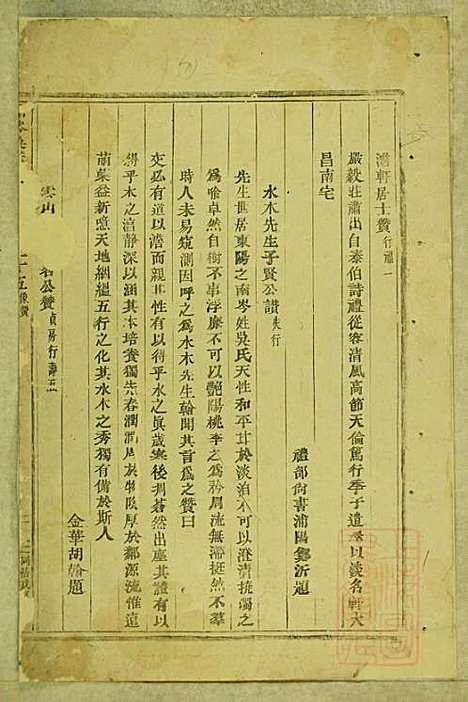 澹軒居士贊行禮一
嚴毅莊肅出自泰伯詩禮從容清風高節天倫篤行季子遺
以淡名軒大
昌南宅
禮部尚書浦陽鄭沂題
水木先生子賢公讃
先生世居東陽之南岑姓吳氏天性和平甘於淡泊不可以澄清撓濁之
爲喻卓然自樹不事浮靡不可以艷陽桃李之爲矜周流無滯挺然不羣
時人未易窺測因呼之爲水木先生翰聞其旨爲之贊曰
交必有道以澹而親非性有以得乎水之眞歲寒後凋蒼然出塵其體有以
得乎木之
静深以涵其本培養獨先春潤
周於物
厚於
源流惟遠
萌蘖益新噫天地絪縕五行之化其水木之秀獨有備於斯人
金華胡翰題
公贊貞易行壽五